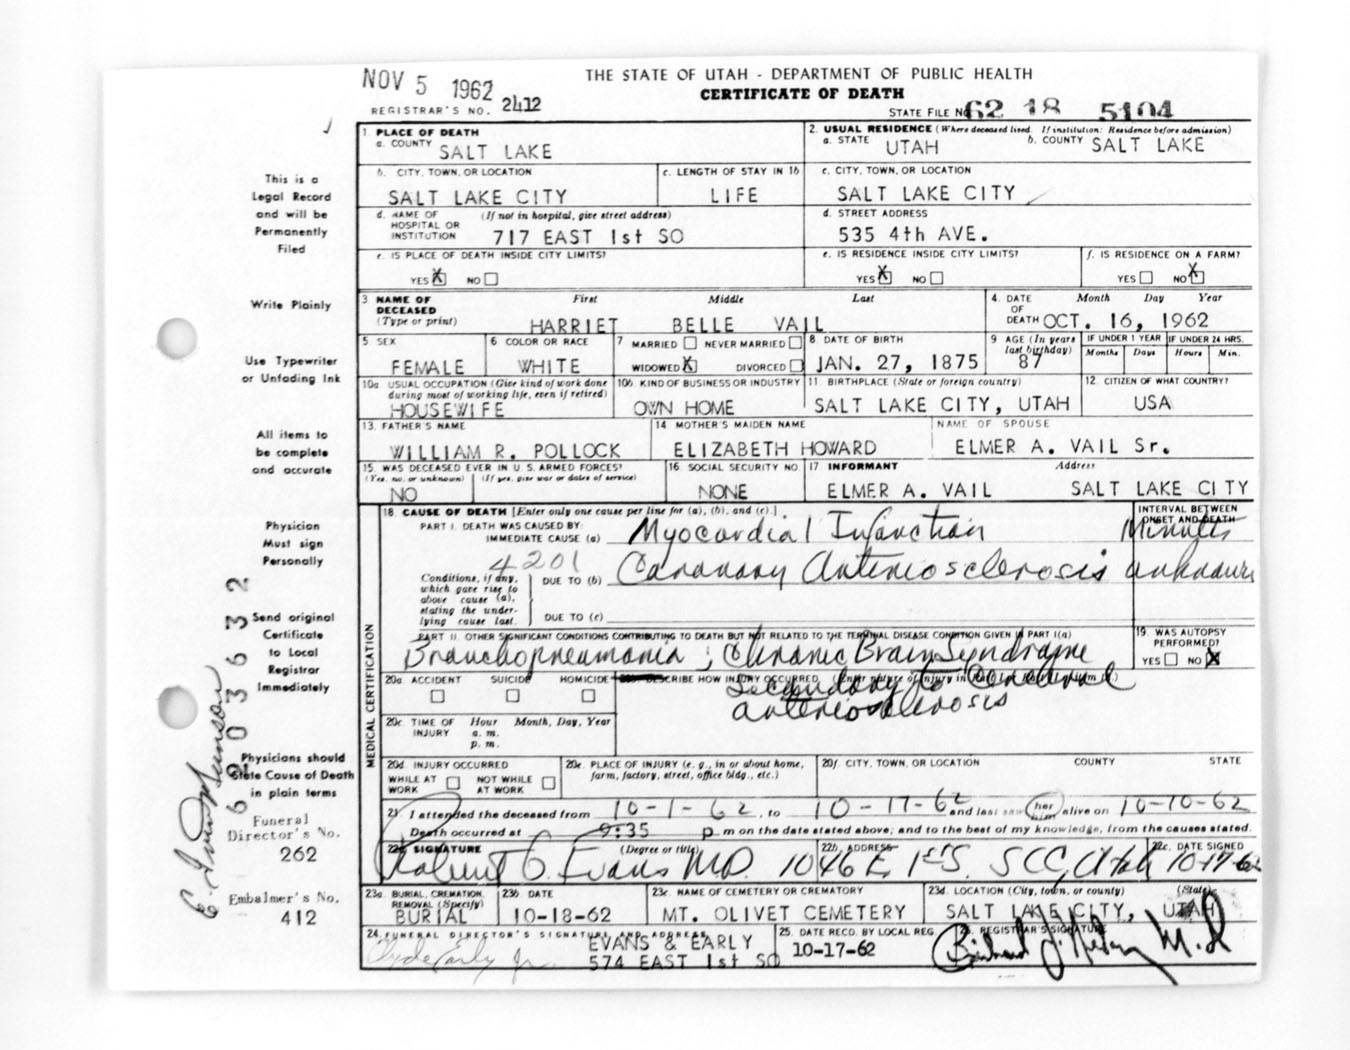 NOV 5 1962
THE STATE OF UTAH - DEPARTMENT OF PUBLIC HEALTH
CERTIFICATE OF DEATH
REGISTRAR'S NO. 2412
STATE FILE NO. 62 18 5104
1. PLACE OF DEATH
a. COUNTY SALT LAKE
2. USUAL RESIDENCE (Where deceased lived. If institution: Residence before admission)
a. STATE UTAH b. COUNTY SALT LAKE
b. CITY, TOWN, OR LOCATION SALT LAKE CITY
c. LENGTH OF STAY IN 1b LIFE
c. CITY, TOWN, OR LOCATION SALT LAKE CITY
d. NAME OF HOSPITAL OR INSTITUTION (If not in hospital, give street address) 717 EAST 1st SO
d. STREET ADDRESS 535 4th AVE.
e. IS PLACE OF DEATH INSIDE CITY LIMITS? YES X NO
e. IS RESIDENCE INSIDE CITY LIMITS? YES X NO
f. IS RESIDENCE ON A FARM? YES NO X
3 NAME OF DECEASED (Type or print) First Middle Last
HARRIET BELLE VAIL
4. DATE OF DEATH Month Day Year
OCT. 16, 1962
5 SEX FEMALE
6 COLOR OR RACE WHITE
7 MARRIED NEVER MARRIED
WIDOWED X DIVORCED
8 DATE OF BIRTH JAN. 27, 1875
9 AGE (In years last birthday) 87
IF UNDER 1 YEAR Months Days
IF UNDER 24 HRS. Hours Min.
10a USUAL OCCUPATION (Give kind of work done during most of working life, even if retired) HOUSEWIFE
10b KIND OF BUSINESS OR INDUSTRY OWN HOME
11 BIRTHPLACE (State or foreign country) SALT LAKE CITY, UTAH
12 CITIZEN OF WHAT COUNTRY? USA
13. FATHER'S NAME WILLIAM R. POLLOCK
14 MOTHER'S MAIDEN NAME ELIZABETH HOWARD
NAME OF SPOUSE ELMER A. VAIL Sr.
15 WAS DECEASED EVER IN U. S. ARMED FORCES? (Yes, no, or unknown) (If yes, give war or dates of service) NO
16 SOCIAL SECURITY NO NONE
17 INFORMANT Address
ELMER A. VAIL SALT LAKE CITY
18. CAUSE OF DEATH [Enter only one cause per line for (a), (b), and (c).]
INTERVAL BETWEEN ONSET AND DEATH
PART I. DEATH WAS CAUSED BY:
IMMEDIATE CAUSE (a) Myocardial Infarction Minutes
4201
Conditions, if any, which gave rise to above cause (a), stating the underlying cause last.
DUE TO (b) Coronary Arteriosclerosis unknown
DUE TO (c)
PART II. OTHER SIGNIFICANT CONDITIONS CONTRIBUTING TO DEATH BUT NOT RELATED TO THE TERMINAL DISEASE CONDITION GIVEN IN PART I(a)
Bronchopneumonia ; Chronic Brain Syndrome
Secondary to Cerebral
arteriosclerosis
19. WAS AUTOPSY PERFORMED? YES NO X
20a ACCIDENT SUICIDE HOMICIDE
DESCRIBE HOW INJURY OCCURRED
20c. TIME OF INJURY Hour Month, Day, Year
a. m.
p. m.
20d INJURY OCCURRED
WHILE AT WORK NOT WHILE AT WORK
20e. PLACE OF INJURY (e. g., in or about home, farm, factory, street, office bldg., etc.)
20f. CITY, TOWN, OR LOCATION COUNTY STATE
21 I attended the deceased from 10-1-62, to 10-17-62 and last saw her him alive on 10-10-62
Death occurred at 9:35 p m on the date stated above; and to the best of my knowledge, from the causes stated.
22a SIGNATURE (Degree or title) Robert G. Evans MD.
22b. ADDRESS 1046 E 1st S. SLC, Utah
22c. DATE SIGNED 10-17-62
23a. BURIAL, CREMATION, REMOVAL (Specify) BURIAL
23b DATE 10-18-62
23c. NAME OF CEMETERY OR CREMATORY MT. OLIVET CEMETERY
23d. LOCATION (City, town, or county) (State) SALT LAKE CITY, UTAH
24. FUNERAL DIRECTOR'S SIGNATURE AND ADDRESS
Clyde Early Jr.
EVANS & EARLY
574 EAST 1st SO
25. DATE RECD. BY LOCAL REG. 10-17-62
REGISTRAR'S SIGNATURE
M.D
MEDICAL CERTIFICATION
This is a
Legal Record
and will be
Permanently
Filed
Write Plainly
Use Typewriter
or Unfading Ink
All items to
be complete
and accurate
Physician
Must sign
Personally
Send original
Certificate
to Local
Registrar
Immediately
Physicians should
State Cause of Death
in plain terms
Funeral
Director's No.
262
Embalmer's No.
412
62 03632